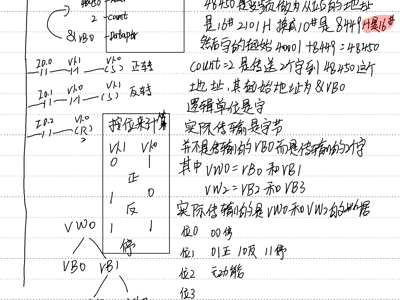 48450
2 - Count
&VB0 - Dataptr
是16# 2101H 换成10#是8449 H是16#
然后字的起始 40001+8449=48450
Count=2 是传送2个字到48450这个
地址,其初始地址为&VB0
逻辑单位是字
I0.0 V1.1 V1.0 (S) 正转
I0.1 V1.0 V1.1 (S) 反转
I0.2 V1.0 (R) 2
实际传输是字节
按位来计算
V1.1 V1.0
0 1
正
1 0
反
1 1
停
并不是传输的VB0而是传输的2个字
其中 VW0=VB0和VB1
VW2=VB2和VB3
实际传输的是VW0和VW2的数据
VW0
VB0 VB1
位0 00停
位1 01正 10反 11停
位2 无功能
位3